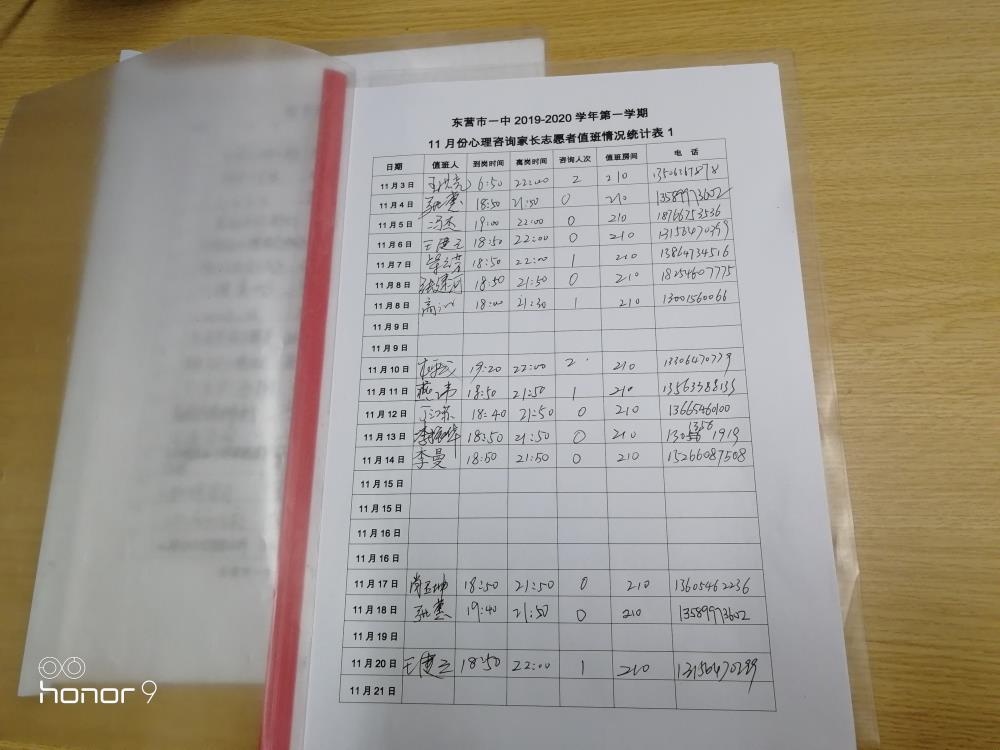 东营市一中 2019-2020 学年第一学期
11 月份心理咨询家长志愿者值班情况统计表 1
日期 值班人 到岗时间 离岗时间 咨询人次 值班房间 电 话
11 月 3 日 6:50 22:00 2 210
11 月 4 日 18:50 21:50 0 210 13589973602
11 月 5 日 冯杰 19:00 22:00 0 210 18766753536
11 月 6 日 王建立 18:50 22:00 0 210 13156470299
11 月 7 日 18:50 22:00 1 210 13864734516
11 月 8 日 18:50 21:50 0 210 18254607775
11 月 8 日 18:00 21:30 1 210 13001560066
11 月 9 日
11 月 9 日
11 月 10 日 19:20 22:00 2 210 13306470779
11 月 11 日 18:50 21:50 1 210
11 月 12 日 丁江苏 18:40 21:50 0 210 13665460100
11 月 13 日 18:50 21:50 0 210
11 月 14 日 李曼 18:50 21:50 0 210 15266087508
11 月 15 日
11 月 15 日
11 月 16 日
11 月 16 日
11 月 17 日 18:50 21:50 0 210 13605462236
11 月 18 日 19:40 21:50 0 210 13589973602
11 月 19 日
11 月 20 日 王建立 18:50 22:00 1 210 13156470299
11 月 21 日
honor 9